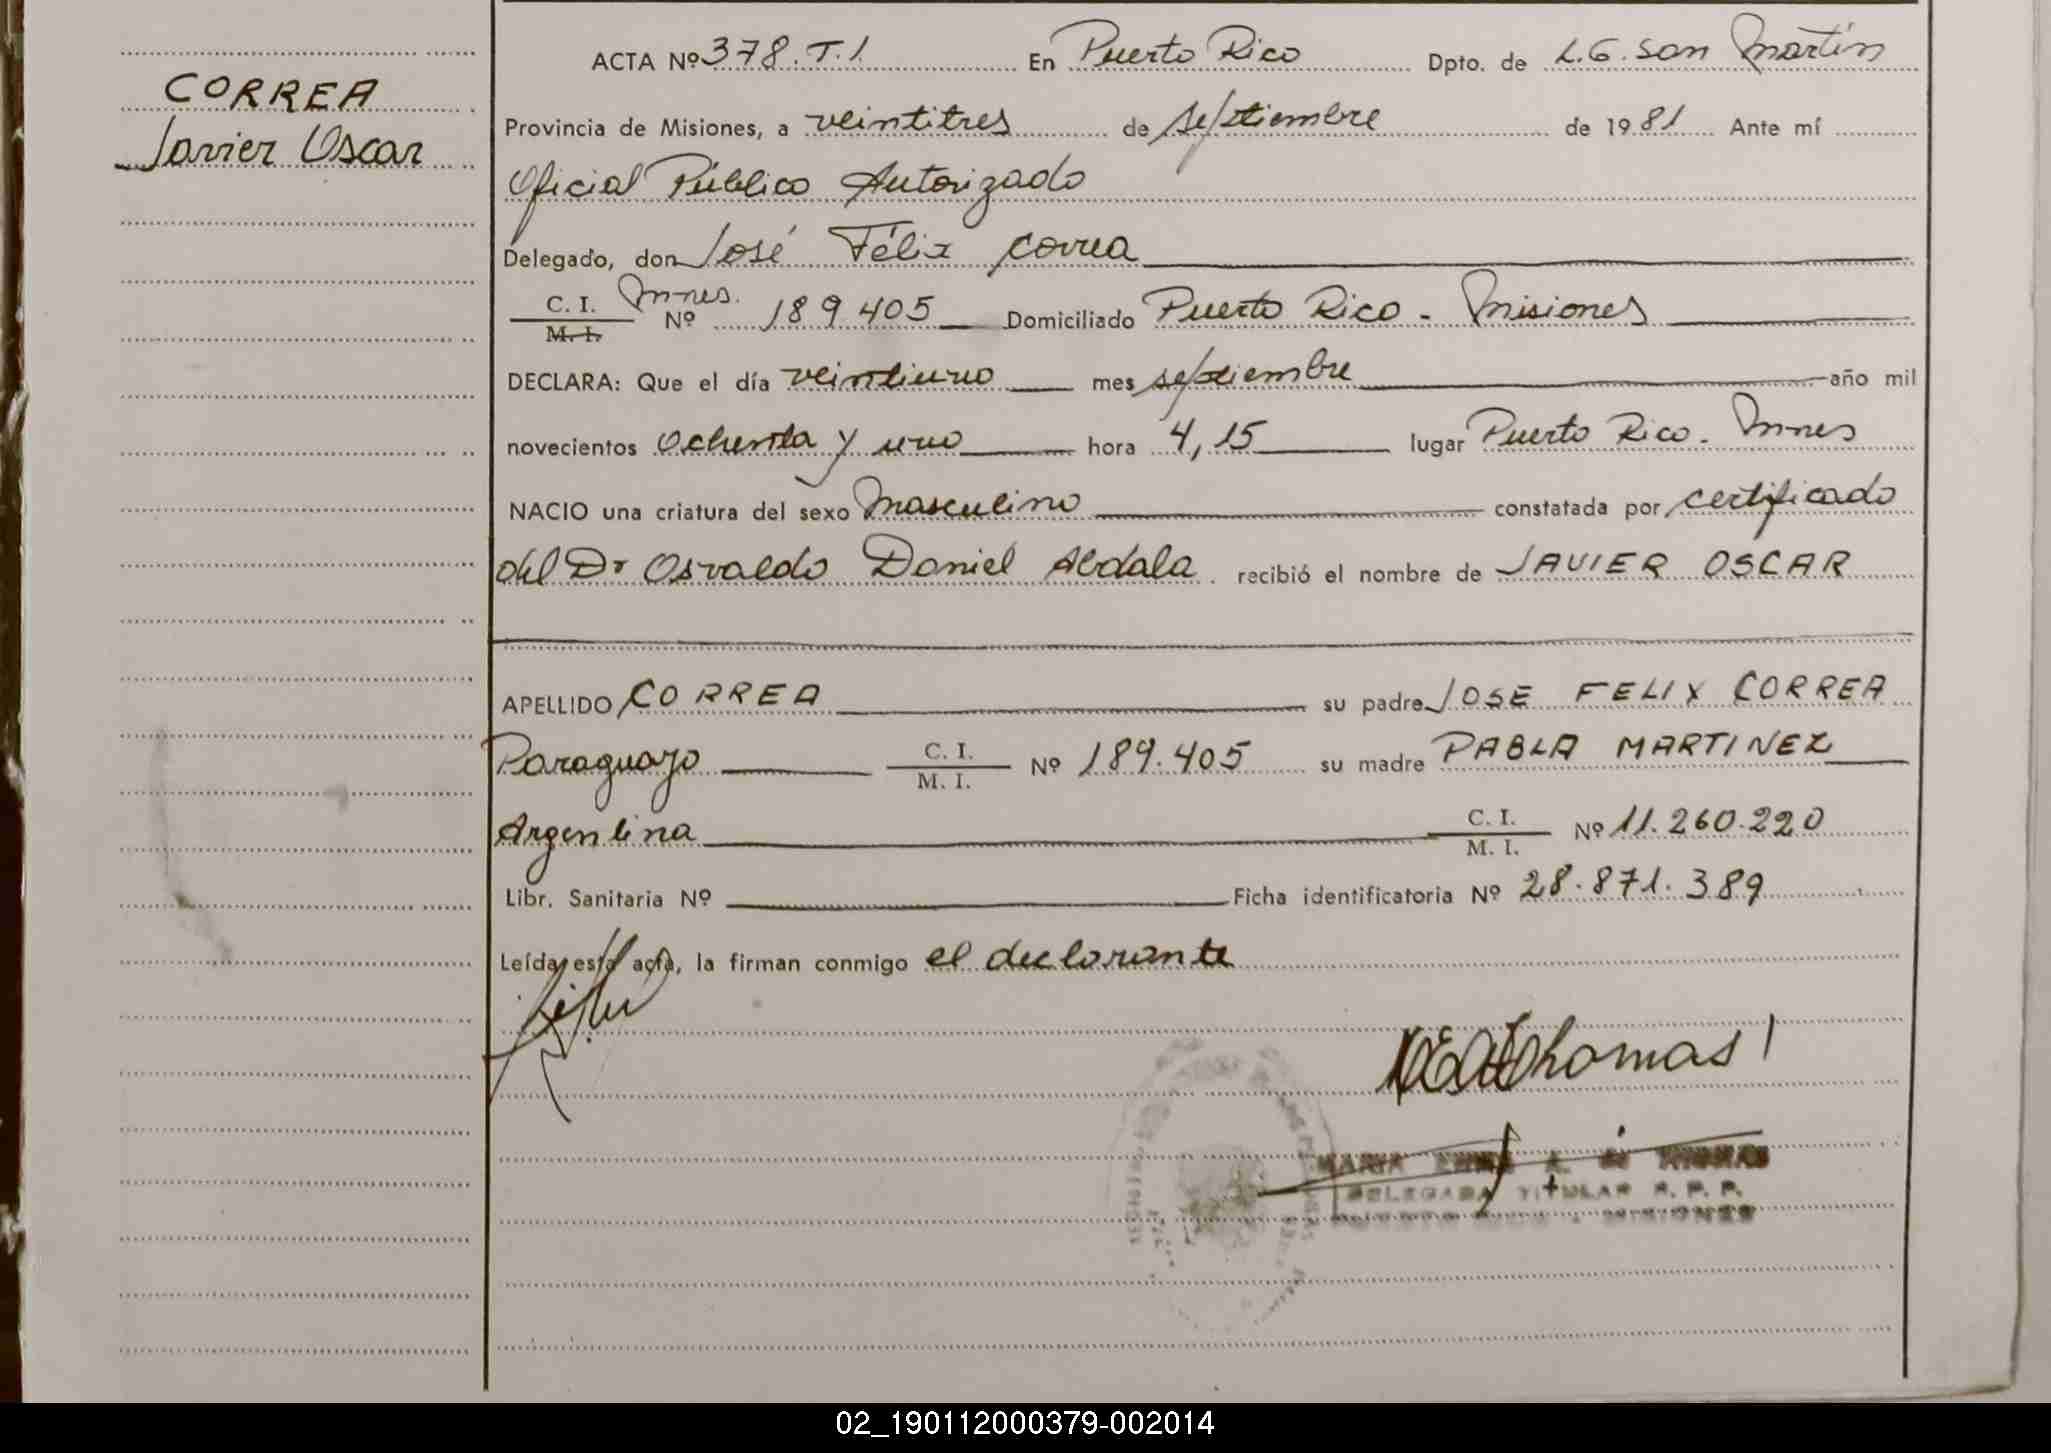 CORREA
Javier Oscar
ACTA Nº 378.T.1 En Puerto Rico Dpto. de L.G. San Martín
Provincia de Misiones, a veintitres de septiembre de 1981 Ante mí
Oficial Público Autorizado
Delegado, don José Félix Correa
C. I. Mnes. Nº 189405 Domiciliado Puerto Rico - Misiones
M. I.
DECLARA: Que el día veintiuno mes septiembre año mil
novecientos ochenta y uno hora 4,15 lugar Puerto Rico - Mnes
NACIO una criatura del sexo Masculino constatada por certificado
del Dr Osvaldo Daniel Abdala recibió el nombre de JAVIER OSCAR
APELLIDO CORREA su padre JOSE FELIX CORREA
Paraguayo C. I. Nº 189.405 su madre PABLA MARTINEZ
M. I.
Argentina C. I. Nº 11.260.220
M. I.
Libr. Sanitaria Nº Ficha identificatoria Nº 28.871.389
Leída esta acta, la firman conmigo el declarante
Thomas
MARIA A. de THOMAS
DELEGADA TITULAR R. P. P.
PUERTO RICO - MISIONES
02_190112000379-002014